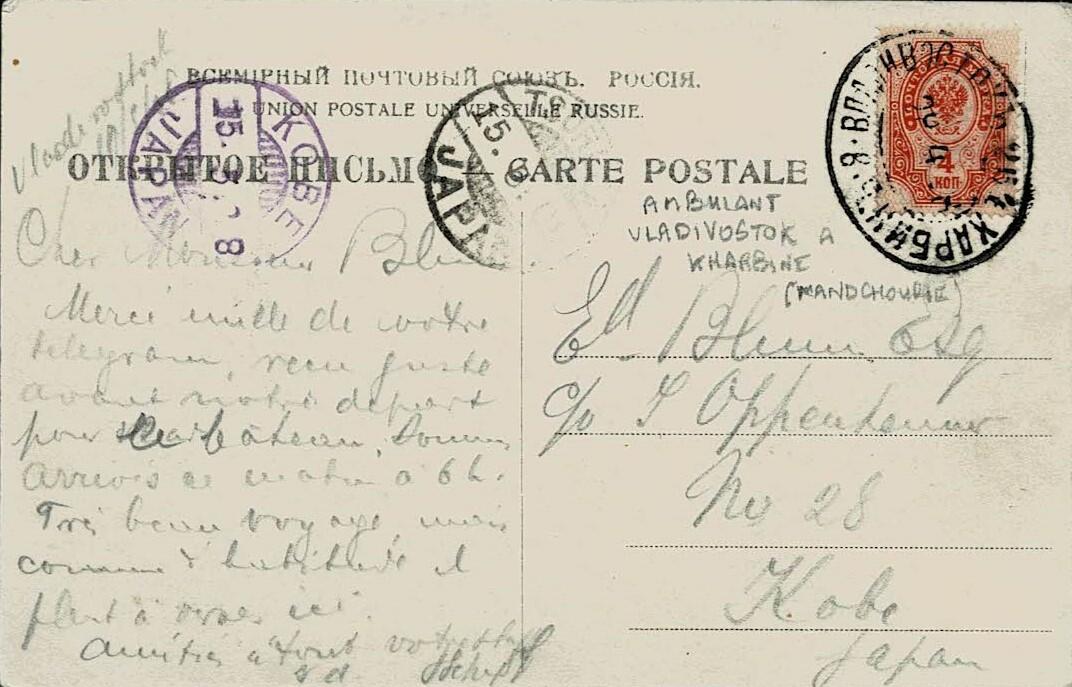 ВСЕМІРНЫЙ ПОЧТОВЫЙ СОЮЗЪ. РОССІЯ.
UNION POSTALE UNIVERSELLE RUSSIE.
ОТКРЫТОЕ ПИСЬМО — CARTE POSTALE
KOBE
15.
8
JAPAN
15.
JAPAN
ХАРБИНЪ
4
КОП
AMBULANT
VLADIVOSTOK A
KHARBINE
(MANDCHOURIE)
Vladevostock
Cher Monsieur Blum.
Merci mille de votre
telegram, recu juste
avant notre depart
pour le bateau, Sommes
arrivés ce matin a 6 h.
Très beau voyage, mais
comme d'habitude il
pleut à verse ici.
Amitiés à tous votre
Ed Blum Esq
c/o S Oppenheimer
No 28
Kobe
Japan